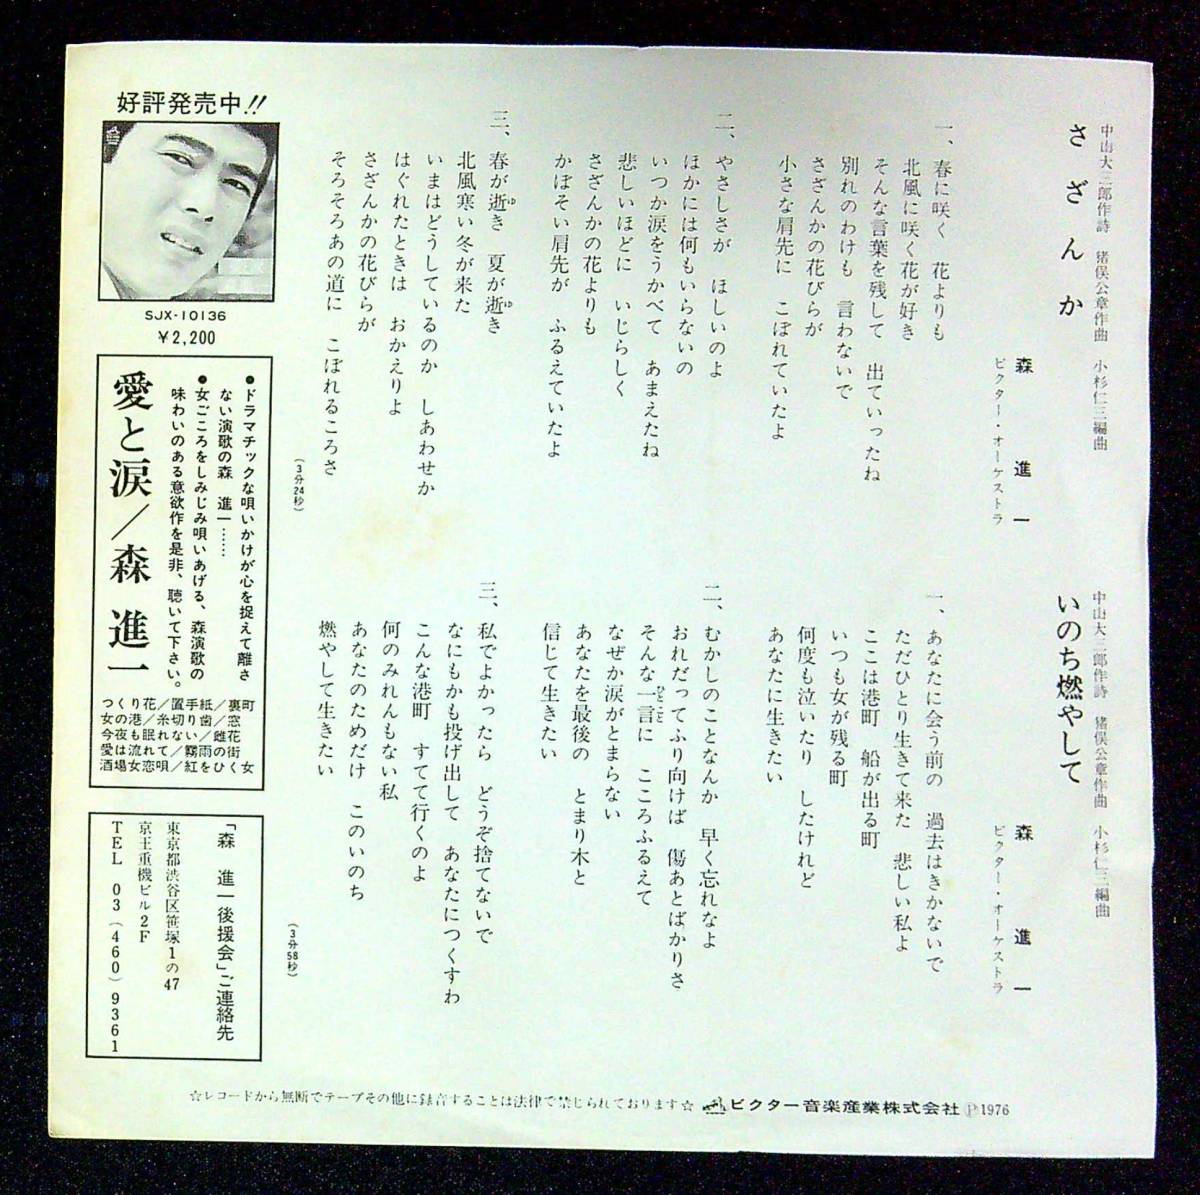 中山大三郎作詩　猪俣公章作曲　小杉仁三編曲
さざんか
森　進一
ビクター・オーケストラ
一、春に咲く　花よりも
北風に咲く花が好き
そんな言葉を残して　出ていったね
別れのわけも　言わないで
さざんかの花びらが
小さな肩先に　こぼれていたよ
二、やさしさが　ほしいのよ
ほかには何もいらないの
いつか涙をうかべて　あまえたね
悲しいほどに　いじらしく
さざんかの花よりも
かぼそい肩先が　ふるえていたよ
三、春が逝き　夏が逝き
北風寒い冬が来た
いまはどうしているのか　しあわせか
はぐれたときは　おかえりよ
さざんかの花びらが
そろそろあの道に　こぼれるころさ
(3分24秒)
中山大三郎作詩　猪俣公章作曲　小杉仁三編曲
いのち燃やして
森　進一
ビクター・オーケストラ
一、あなたに会う前の　過去はきかないで
ただひとり生きて来た　悲しい私よ
ここは港町　船が出る町
いつも女が残る町
何度も泣いたり　したけれど
あなたに生きたい
二、むかしのことなんか　早く忘れなよ
おれだってふり向けば　傷あとばかりさ
そんな一言に　こころふるえて
なぜか涙がとまらない
あなたを最後の　とまり木と
信じて生きたい
三、私でよかったら　どうぞ捨てないで
なにもかも投げ出して　あなたにつくすわ
こんな港町　すてて行くのよ
何のみれんもない私
あなたのためだけ　このいのち
燃やして生きたい
(3分58秒)
好評発売中!!
SJX-10136
¥2,200
●ドラマチックな唄いかけが心を捉えて離さ
ない演歌の森　進一……
●女ごころをしみじみ唄いあげる、森演歌の
味わいのある意欲作を是非、聴いて下さい。
愛と涙／森　進一
つくり花／置手紙／裏町
女の港／糸切り歯／窓
今夜も眠れない／雌花
愛は流れて／霧雨の街
酒場女恋唄／紅をひく女
「森　進一後援会」ご連絡先
東京都渋谷区笹塚1の47
京王重機ビル2F
TEL 03(460)9361
☆レコードから無断でテープその他に録音することは法律で禁じられております☆ ビクター音楽産業株式会社 Ⓟ1976